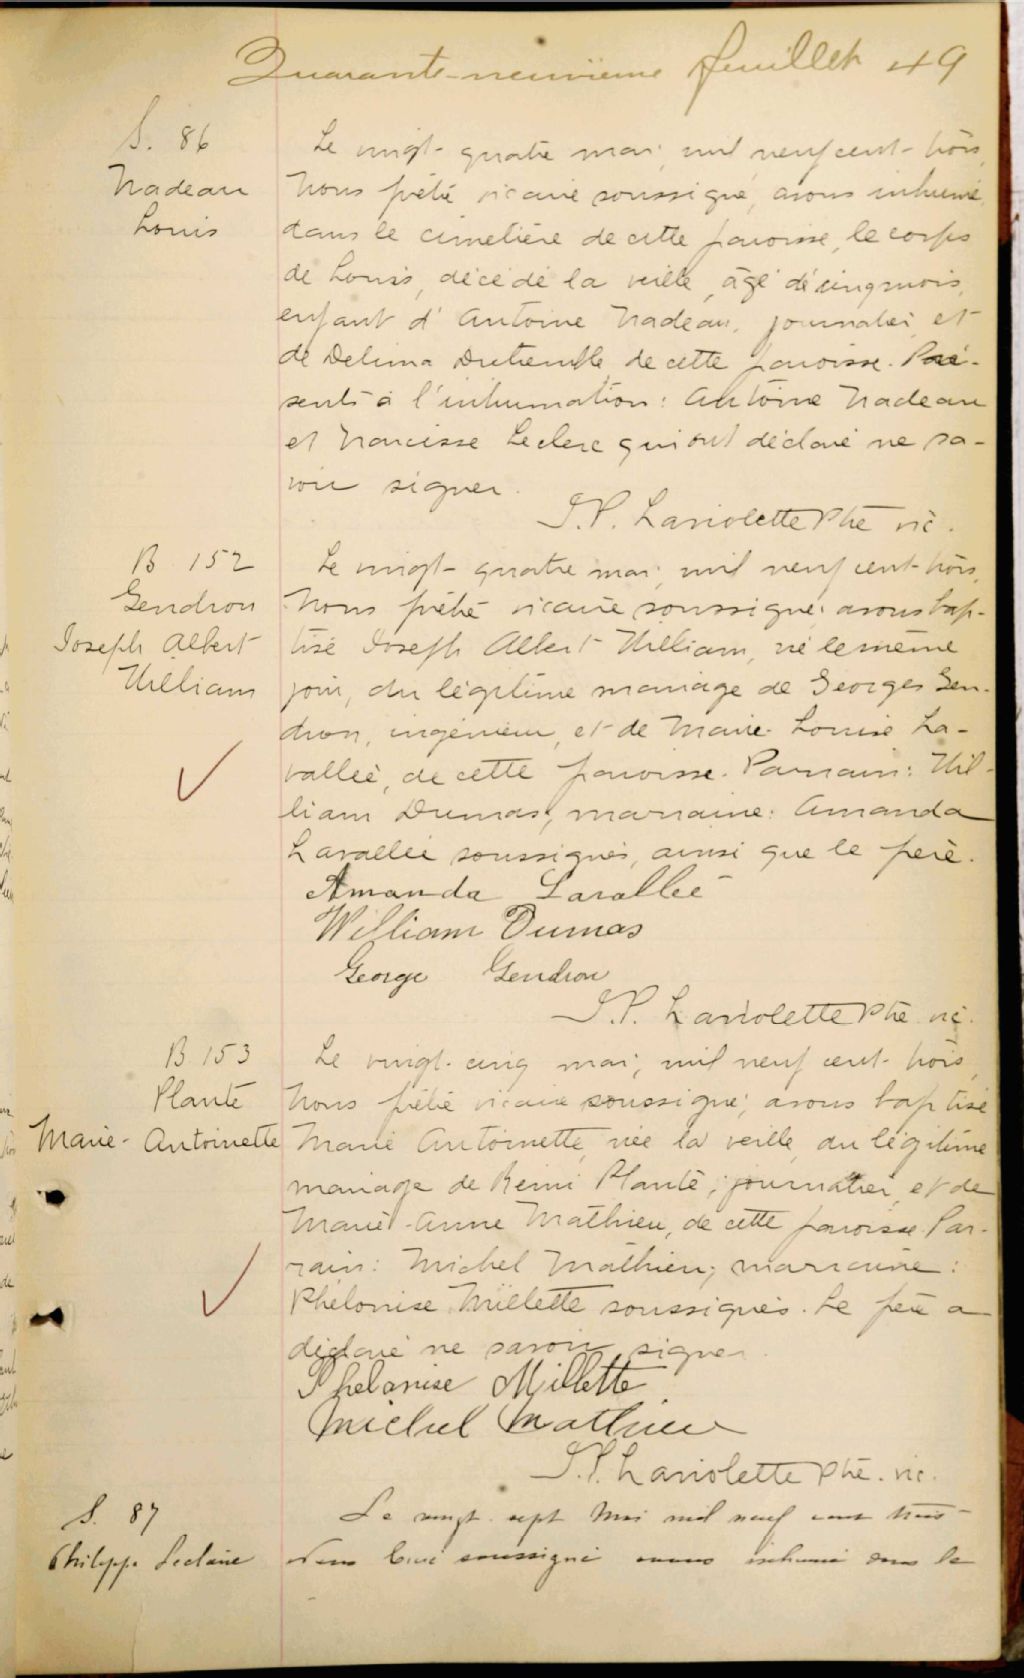 Quarante-neuvième feuillet 49
S. 86
Nadeau
Louis
Le vingt-quatre mai, mil neuf cent-trois,
Nous prêtre vicaire soussigné, avons inhumé,
dans le cimetière de cette paroisse, le corps
de Louis, décédé la veille, âgé de cinq mois,
enfant d'Antoine Nadeau, journalier, et
de Delima Dutremble de cette paroisse. Pré-
sents à l'inhumation: Antoine Nadeau
et Narcisse Leclerc qui ont déclaré ne sa-
voir signer.
J.P. Laviolette Ptre vic.
B 152
Gendron
Joseph Albert
William
Le vingt-quatre mai, mil neuf cent-trois,
Nous prêtre vicaire soussigné, avons bap-
tisé Joseph Albert William, né le même
jour, du légitime mariage de Georges Gen-
dron, ingénieur, et de Marie-Louise La-
vallée, de cette paroisse. Parrain: Wil-
liam Dumas, marraine: Amanda
Lavallée soussignés, ainsi que le père.
Amanda Lavallée
William Dumas
George Gendron
J.P. Laviolette Ptre vic.
B 153
Plante
Marie-Antoinette
Le vingt-cinq mai, mil neuf cent-trois,
Nous prêtre vicaire soussigné, avons baptisé
Marie Antoinette, née la veille, du légitime
mariage de Rémi Plante, journalier, et de
Marie-Anne Mathieu, de cette paroisse. Par-
rain: Michel Mathieu; marraine:
Phelonise Millette soussignés. Le père a
déclaré ne savoir signer.
Phelanise Millette
Michel Mathieu
J.P. Laviolette Ptre. vic.
S. 87
Philippe Leclaire
Le vingt-sept Mai mil neuf cent trois
Nous Curé soussigné avons inhumé dans le